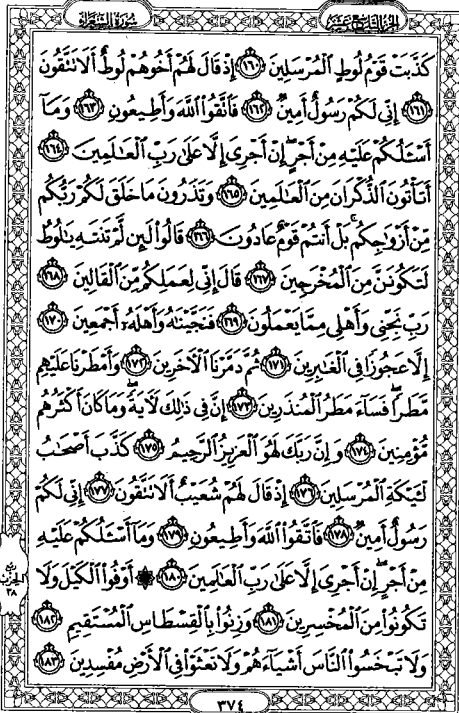 الجزء التاسع عشر
سورة الشعراء
كَذَّبَتْ قَوْمُ لُوطٍ ٱلْمُرْسَلِينَ ١٦٠ إِذْ قَالَ لَهُمْ أَخُوهُمْ لُوطٌ أَلَا تَتَّقُونَ
١٦١ إِنِّي لَكُمْ رَسُولٌ أَمِينٌ ١٦٢ فَٱتَّقُوا۟ ٱللَّهَ وَأَطِيعُونِ ١٦٣ وَمَآ
أَسْـَٔلُكُمْ عَلَيْهِ مِنْ أَجْرٍ إِنْ أَجْرِىَ إِلَّا عَلَىٰ رَبِّ ٱلْعَٰلَمِينَ ١٦٤
أَتَأْتُونَ ٱلذُّكْرَانَ مِنَ ٱلْعَٰلَمِينَ ١٦٥ وَتَذَرُونَ مَا خَلَقَ لَكُمْ رَبُّكُم
مِّنْ أَزْوَٰجِكُم بَلْ أَنتُمْ قَوْمٌ عَادُونَ ١٦٦ قَالُوا۟ لَئِن لَّمْ تَنتَهِ يَٰلُوطُ
لَتَكُونَنَّ مِنَ ٱلْمُخْرَجِينَ ١٦٧ قَالَ إِنِّي لِعَمَلِكُم مِّنَ ٱلْقَالِينَ ١٦٨
رَبِّ نَجِّنِي وَأَهْلِي مِمَّا يَعْمَلُونَ ١٦٩ فَنَجَّيْنَٰهُ وَأَهْلَهُۥٓ أَجْمَعِينَ ١٧٠
إِلَّا عَجُوزًا فِي ٱلْغَٰبِرِينَ ١٧١ ثُمَّ دَمَّرْنَا ٱلْءَاخَرِينَ ١٧٢ وَأَمْطَرْنَا عَلَيْهِم
مَّطَرًا فَسَآءَ مَطَرُ ٱلْمُنذَرِينَ ١٧٣ إِنَّ فِي ذَٰلِكَ لَءَايَةً وَمَا كَانَ أَكْثَرُهُم
مُّؤْمِنِينَ ١٧٤ وَإِنَّ رَبَّكَ لَهُوَ ٱلْعَزِيزُ ٱلرَّحِيمُ ١٧٥ كَذَّبَ أَصْحَٰبُ
لْـَٔيْكَةِ ٱلْمُرْسَلِينَ ١٧٦ إِذْ قَالَ لَهُمْ شُعَيْبٌ أَلَا تَتَّقُونَ ١٧٧ إِنِّي لَكُمْ
رَسُولٌ أَمِينٌ ١٧٨ فَٱتَّقُوا۟ ٱللَّهَ وَأَطِيعُونِ ١٧٩ وَمَآ أَسْـَٔلُكُمْ عَلَيْهِ
مِنْ أَجْرٍ إِنْ أَجْرِىَ إِلَّا عَلَىٰ رَبِّ ٱلْعَٰلَمِينَ ١٨٠ ۞ أَوْفُوا۟ ٱلْكَيْلَ وَلَا
تَكُونُوا۟ مِنَ ٱلْمُخْسِرِينَ ١٨١ وَزِنُوا۟ بِٱلْقِسْطَاسِ ٱلْمُسْتَقِيمِ ١٨٢
وَلَا تَبْخَسُوا۟ ٱلنَّاسَ أَشْيَآءَهُمْ وَلَا تَعْثَوْا۟ فِي ٱلْأَرْضِ مُفْسِدِينَ ١٨٣
ربع
الحزب
٣٨
٣٧٤